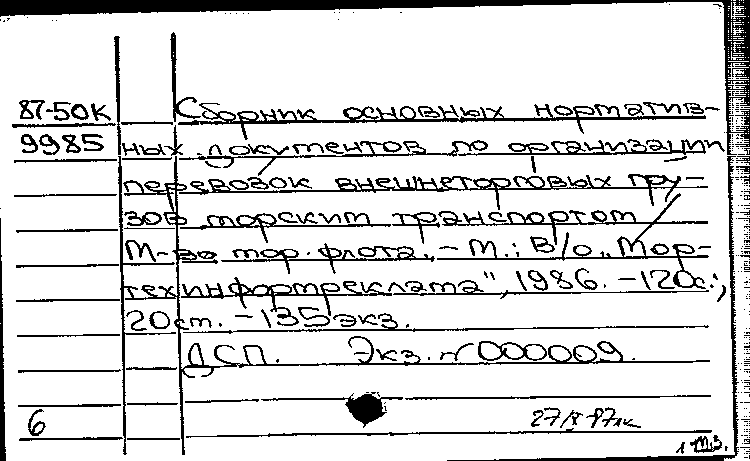 87-50К Сборник основных норматив-
9985 ных документов по организации
перевозок внешнеторговых гру-
зов морским транспортом /
М-во мор. флота. - М.: В/о „Мор-
техинформреклама", 1986. - 120с.;
20см. - 135экз.
ДСП. Экз. № 000009.
6